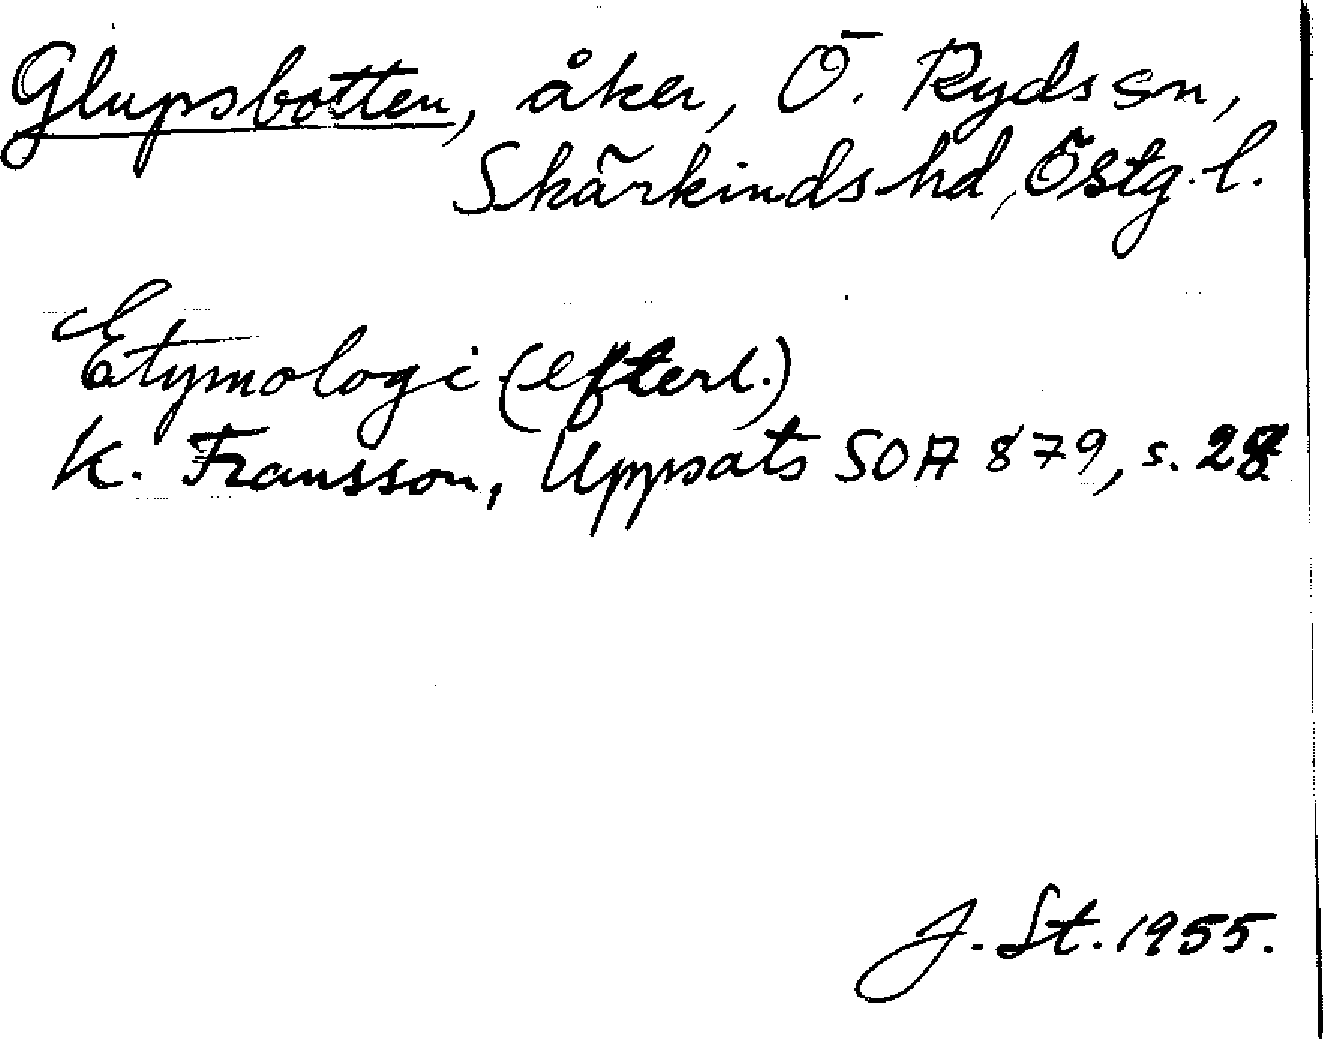 Glupsbotten, åker, Ö. Ryds sn,
Skärkinds hd, Östg. l.
Etymologi (efterl.)
K. Fransson, Uppsats SOA 879, s.
J. St. 1955.